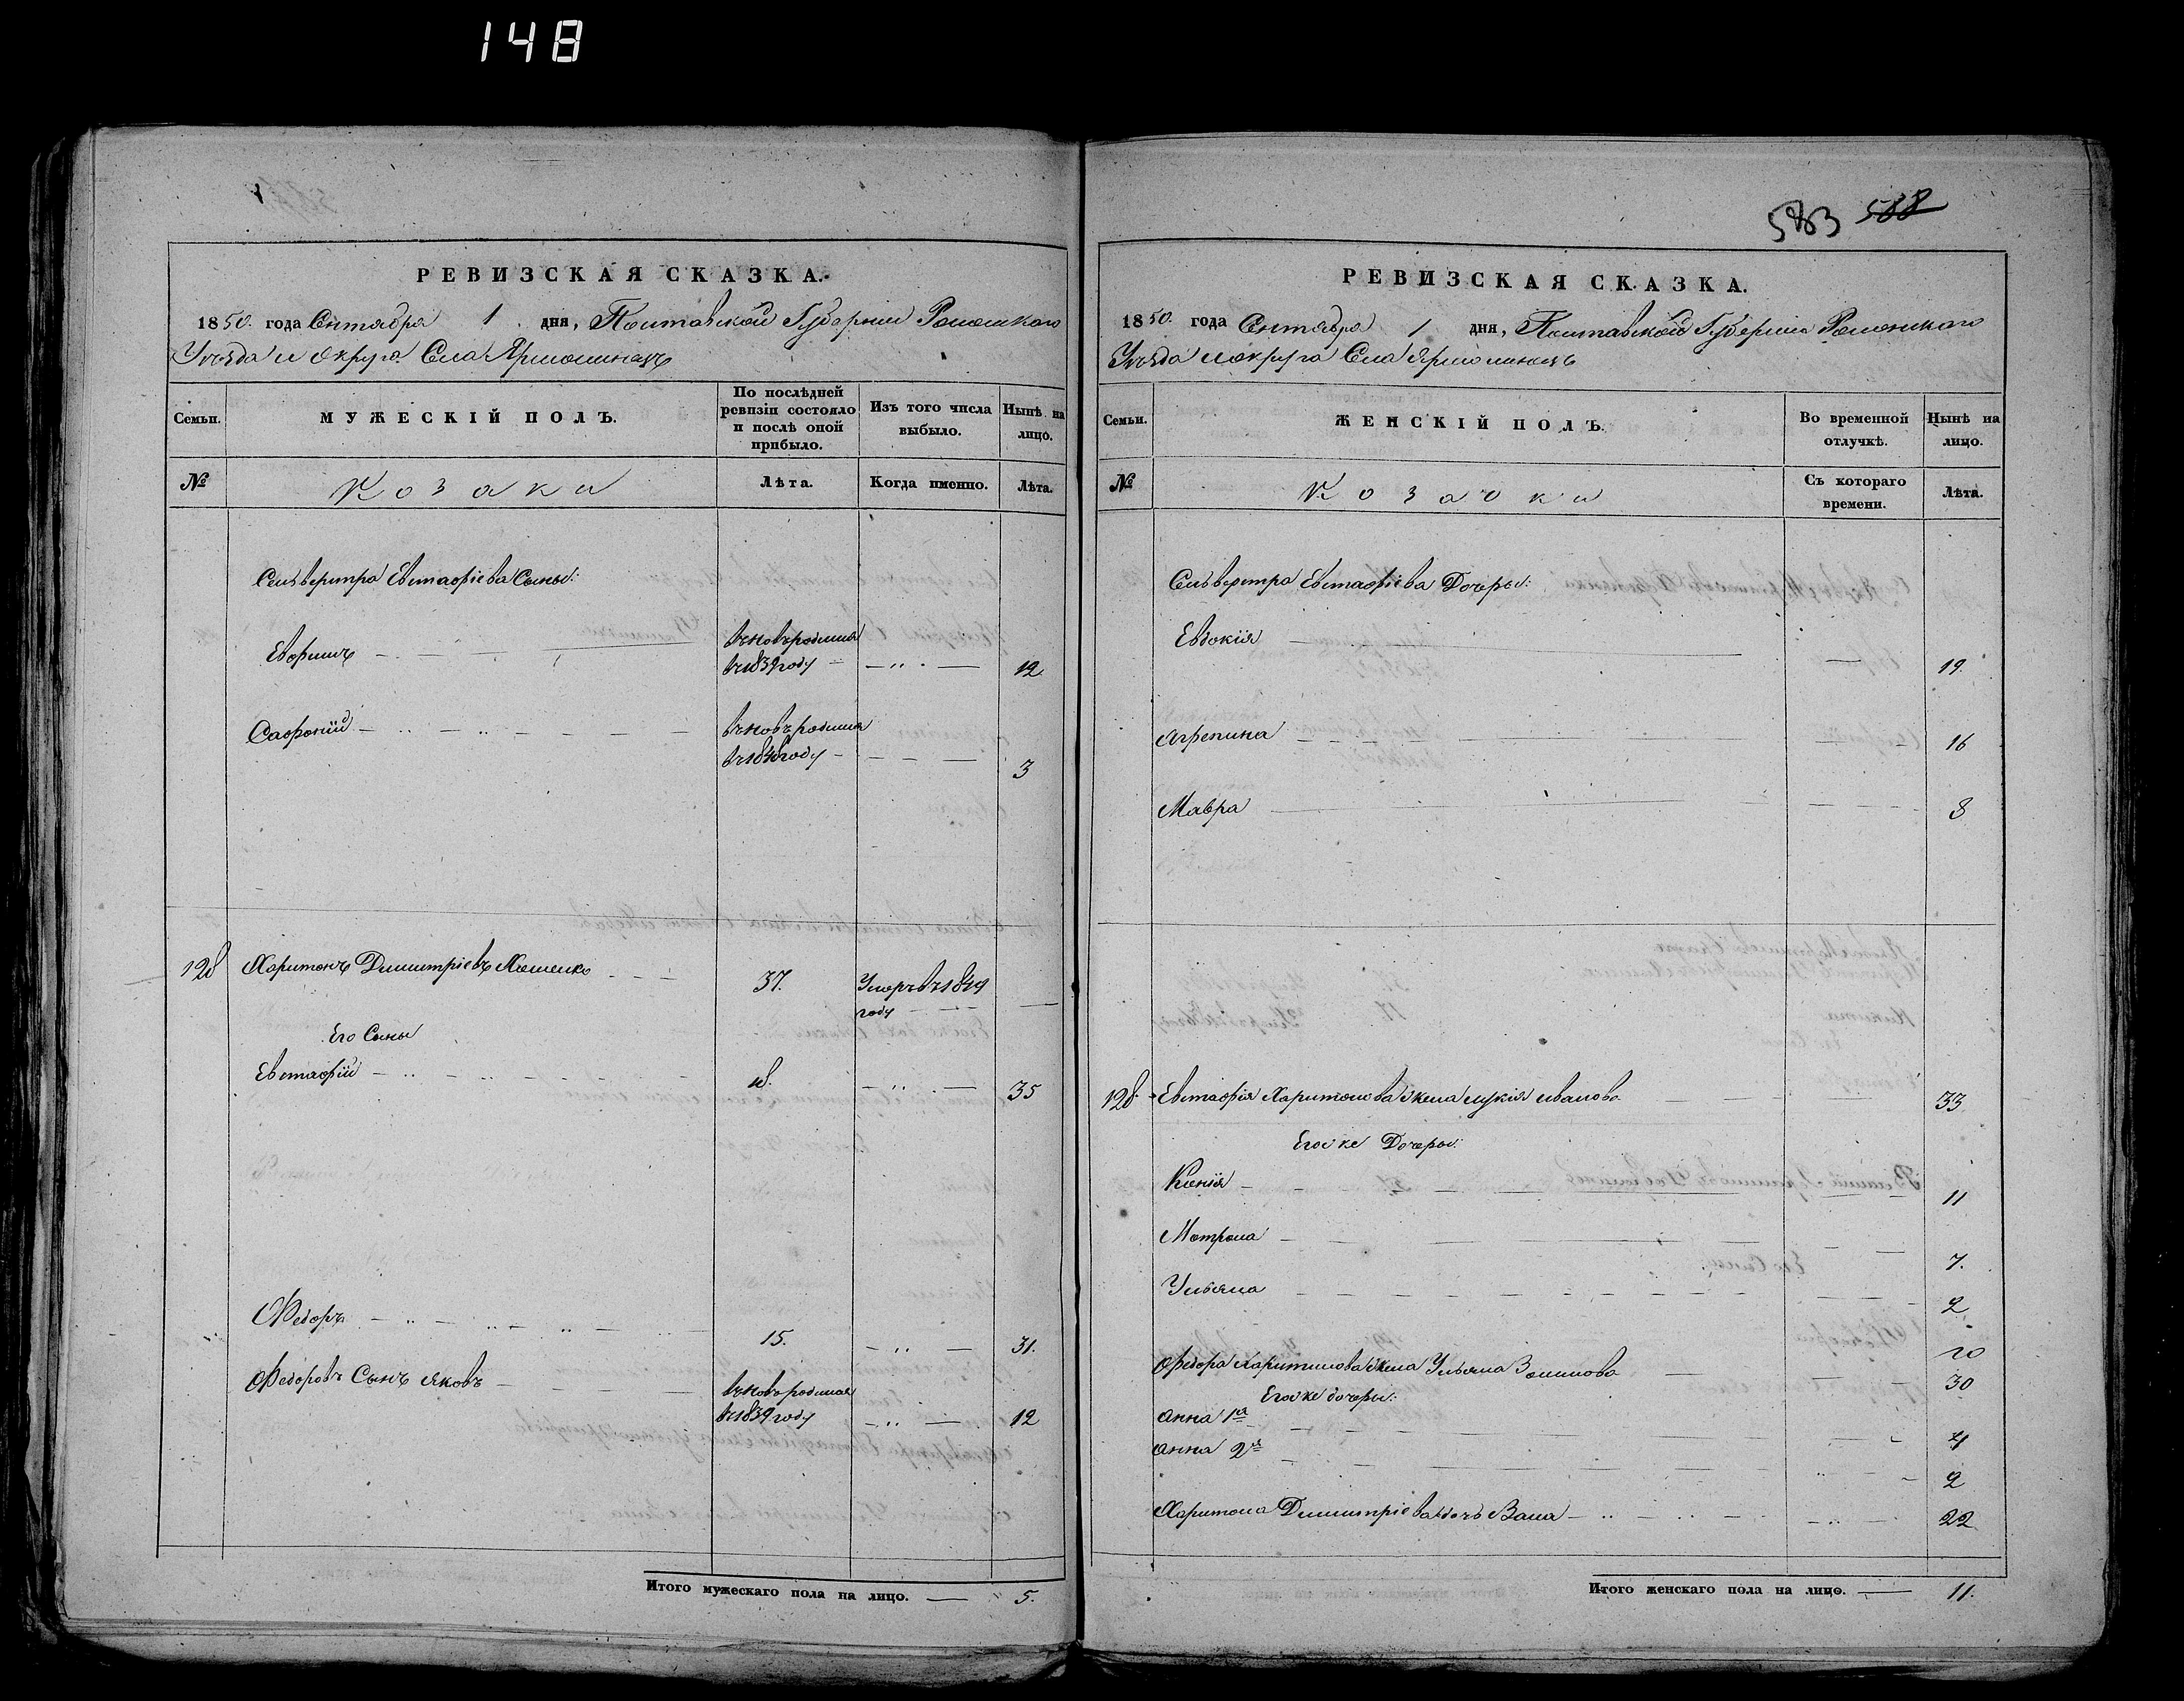 148
РЕВИЗСКАЯ СКАЗКА.
1850. года Сентября 1. дня, Полтавской Губернии Роменскаго
Уѣзда и Округа. Села Ярмолинецъ
Семьи.
МУЖЕСКІЙ ПОЛЪ.
По послѣдней ревизіи состояло и послѣ оной прибыло.
Изъ того числа выбыло.
Нынѣ на лицо.
№
Козаки
Лѣта.
Когда именно.
Лѣта.
Сельверстра Евстафіева Сыны:
въновьродился
въ1839году 12
Сафроній
въновьродился
году 3
128 Харитонъ Димитріевъ 37. Умеръвъ1849
году
Его Сыны
Евстафій 18. 35
Федоръ 15. 31.
Федоровъ Сынъ Яковъ
въновьродился
въ1839году 12
Итого мужескаго пола на лицо. 5.
583 588
РЕВИЗСКАЯ СКАЗКА.
1850. года Сентября 1 дня, Полтавской Губерніи Роменскаго
Уѣзда и округа Села Ярмолинецъ
Семьи.
ЖЕНСКІЙ ПОЛЪ.
Во временной отлучкѣ.
Нынѣ на лицо.
№
Козачки
Съ котораго времени.
Лѣта.
Сельверстра Евстафіева Дочеры:
Евдокія 19.
Агрепина 16
Мавра 8
128. Евстафія Харитонова жена Лукія иванова 33
Егоже Дочеры:
Ксенія 11
Мотрона 7.
Ульяна 2
Федора Харитонова жена Ульяна 30
Егоже дочеры:
Анна 1я 4
Анна 2я 2
Харитона Димитріева дочь 22
Итого женскаго пола на лицо. 11.